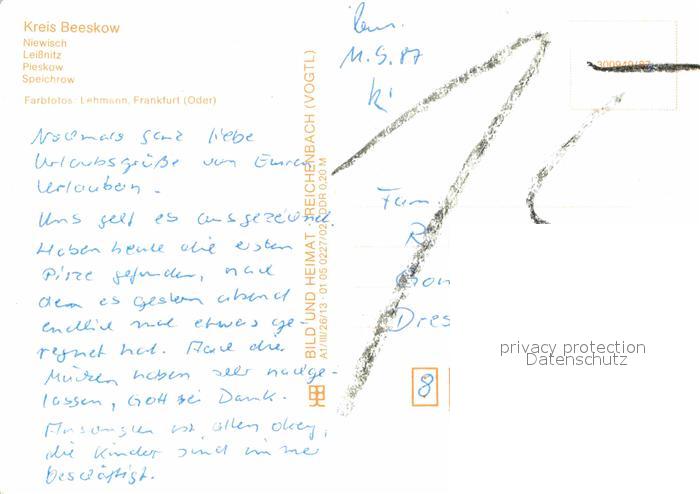 Kreis Beeskow
Niewisch
Leißnitz
Pieskow
Speichrow
Farbfotos: Lehmann, Frankfurt (Oder)
Nochmals ganz liebe
Urlaubsgrüße von Euren
Urlaubern.
Uns geht es ausgezeichnet.
Haben heute die ersten
Pilze gefunden, nach
dem es gestern abend
endlich mal etwas ge-
regnet hat. Auch die
Mücken haben sehr nachge-
lassen, Gott sei Dank.
Ansonsten ist alles okay,
die Kinder sind immer
beschäftigt.
BILD UND HEIMAT REICHENBACH (VOGTL)
A1/III/26/13 01 05 0227/02 DDR 0,20 M
11.9.87
Fam.
R
Dres
8
privacy protection
Datenschutz